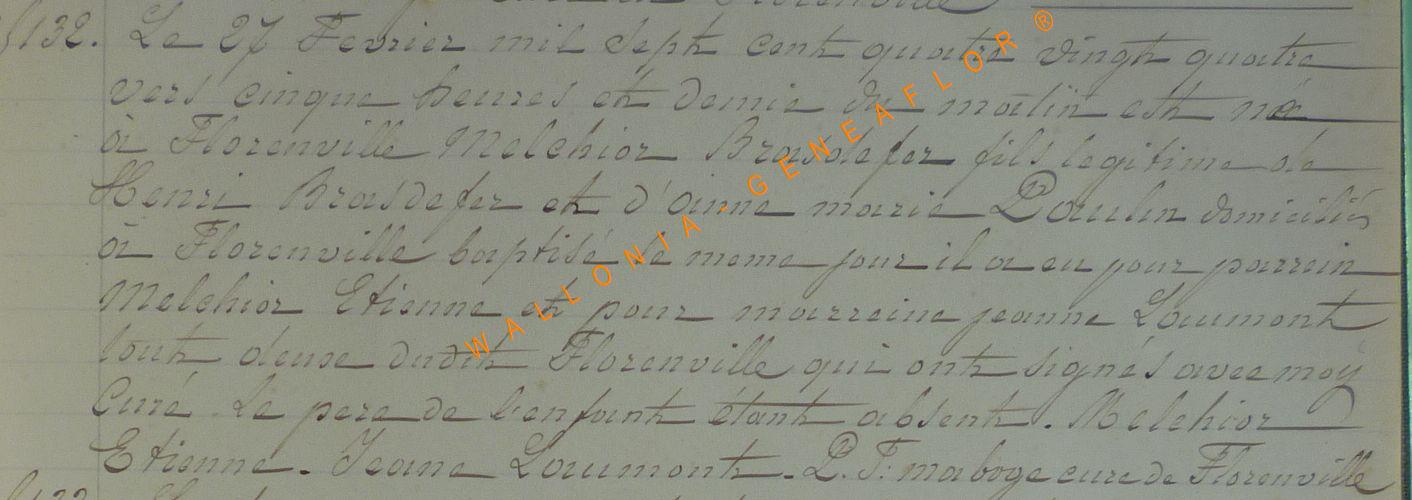 132. Le 27 Fevrier mil sept cent quatre vingt quatre
vers cinque heures et demie du matin est né
à Florenville Melchior Brasdefer fils legitime de
Henri Brasdefer et d'anne marie Poulin domiciliés
à Florenville baptisé le meme jour il a eu pour parrein
Melchior Etienne et pour marreine jeanne Laumont
tout deuse dudit Florenville qui ont signés avec moy
Curé. Le pere de l'enfant étant absent. Melchior
Etienne - Jeane Laumont - P. J: maboge cure de Florenville
WALLONIA - GENEAFLOR ®